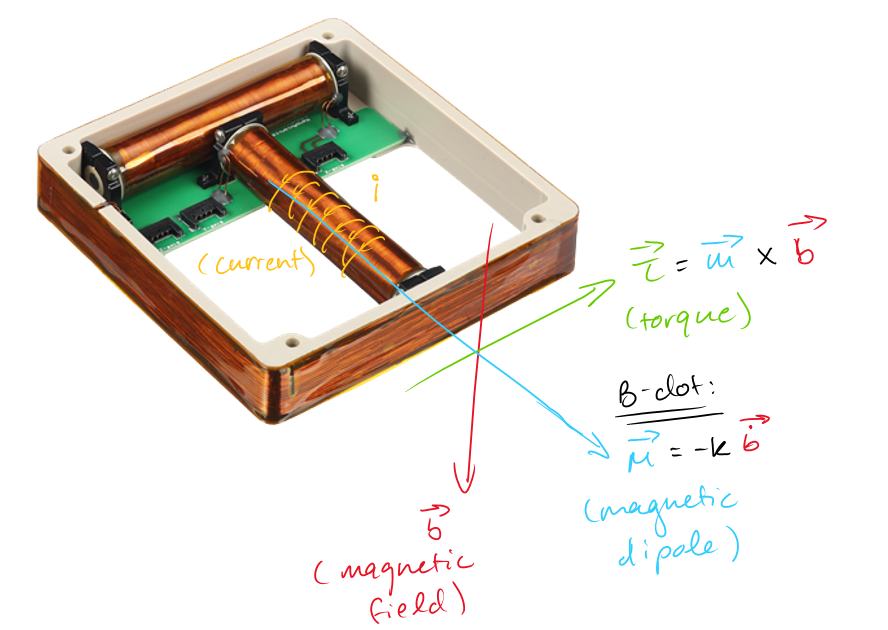 i
(current)
τ⃗ = m⃗ × b⃗
(torque)
B-dot:
μ⃗ = -k ḃ⃗
(magnetic
dipole)
b⃗
(magnetic
field)